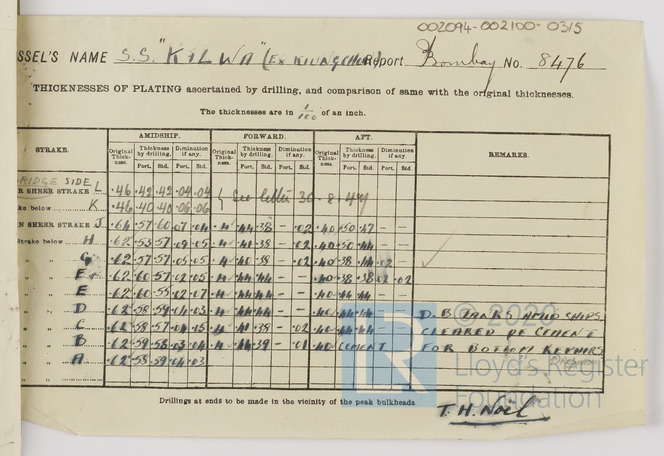 002094-002100-0315
SSEL'S NAME S.S. "KILWA" (EX KIUNGCHOW) Report Bombay No. 8476
THICKNESSES OF PLATING ascertained by drilling, and comparison of same with the original thicknesses.
The thicknesses are in 1/100 of an inch.
STRAKE. AMIDSHIP. FORWARD. AFT. REMARKS.
Original Thickness. Thickness by drilling. Diminution if any. Original Thickness. Thickness by drilling. Diminution if any. Original Thickness. Thickness by drilling. Diminution if any.
Port. Std. Port. Std. Port. Std. Port. Std. Port. Std. Port. Std.
RIDGE SIDE L .46 .42 .42 .04 .04 See letter 30-8-44
R SHEER STRAKE
ke below K .46 .40 .40 .06 .06
N SHEER STRAKE J .64 .57 .60 .07 .04 .4 .44 .38 - .02 .40 .50 .47 - -
Strake below H .62 .53 .57 .09 .05 .4 .41 .38 - .02 .40 .50 .44 - -
" " G .62 .57 .57 .05 .05 .4 .40 .38 - .02 .40 .38 .02 -
" " F .62 .60 .57 .02 .05 .4 .44 .44 - - .40 .38 .38 .02 .02
" " E .62 .60 .55 .02 .07 .4 .44 .44 - - .40 .44 .44 - -
" " D .62 .58 .59 .04 .03 .4 .44 .44 - - .40 .44 .44 - - D.B. TANKS AMIDSHIPS
" " C .62 .58 .57 .04 .05 .4 .41 .38 - .02 .40 .44 .44 - - CLEARED OF CEMENT
" " B .62 .59 .58 .03 .04 .4 .44 .39 - .01 .40 CEMENT FOR BOTTOM REPAIRS
" " A .62 .58 .59 .04 .03
" "
Drillings at ends to be made in the vicinity of the peak bulkheads.
T. H. Noil
© 2020
Lloyd's Register
Foundation
LR